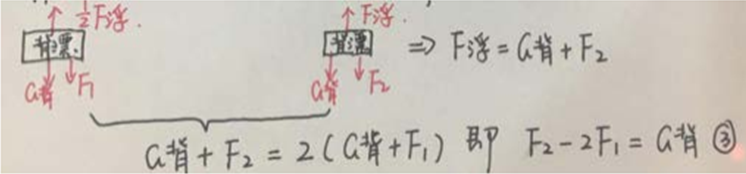 ½F浮. F浮.
背漂 背漂 ⇒ F浮=G背+F₂
G背 F₁ G背 F₂
G背+F₂=2(G背+F₁) 即 F₂-2F₁=G背 ③